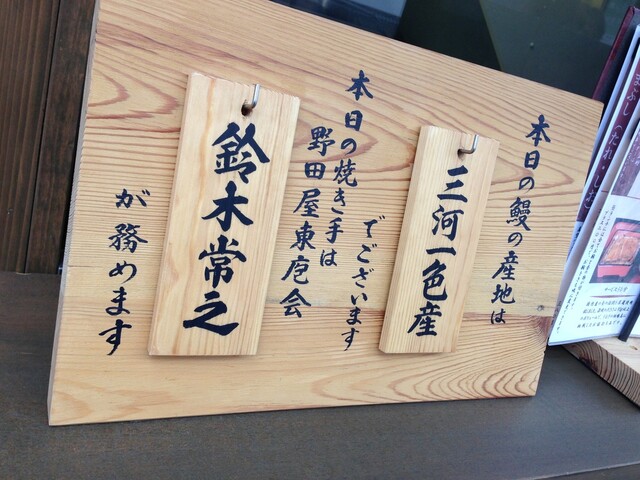 本日の鰻の産地は
三河一色産
でございます
本日の焼き手は
野田屋東庖会
鈴木常之
が務めます